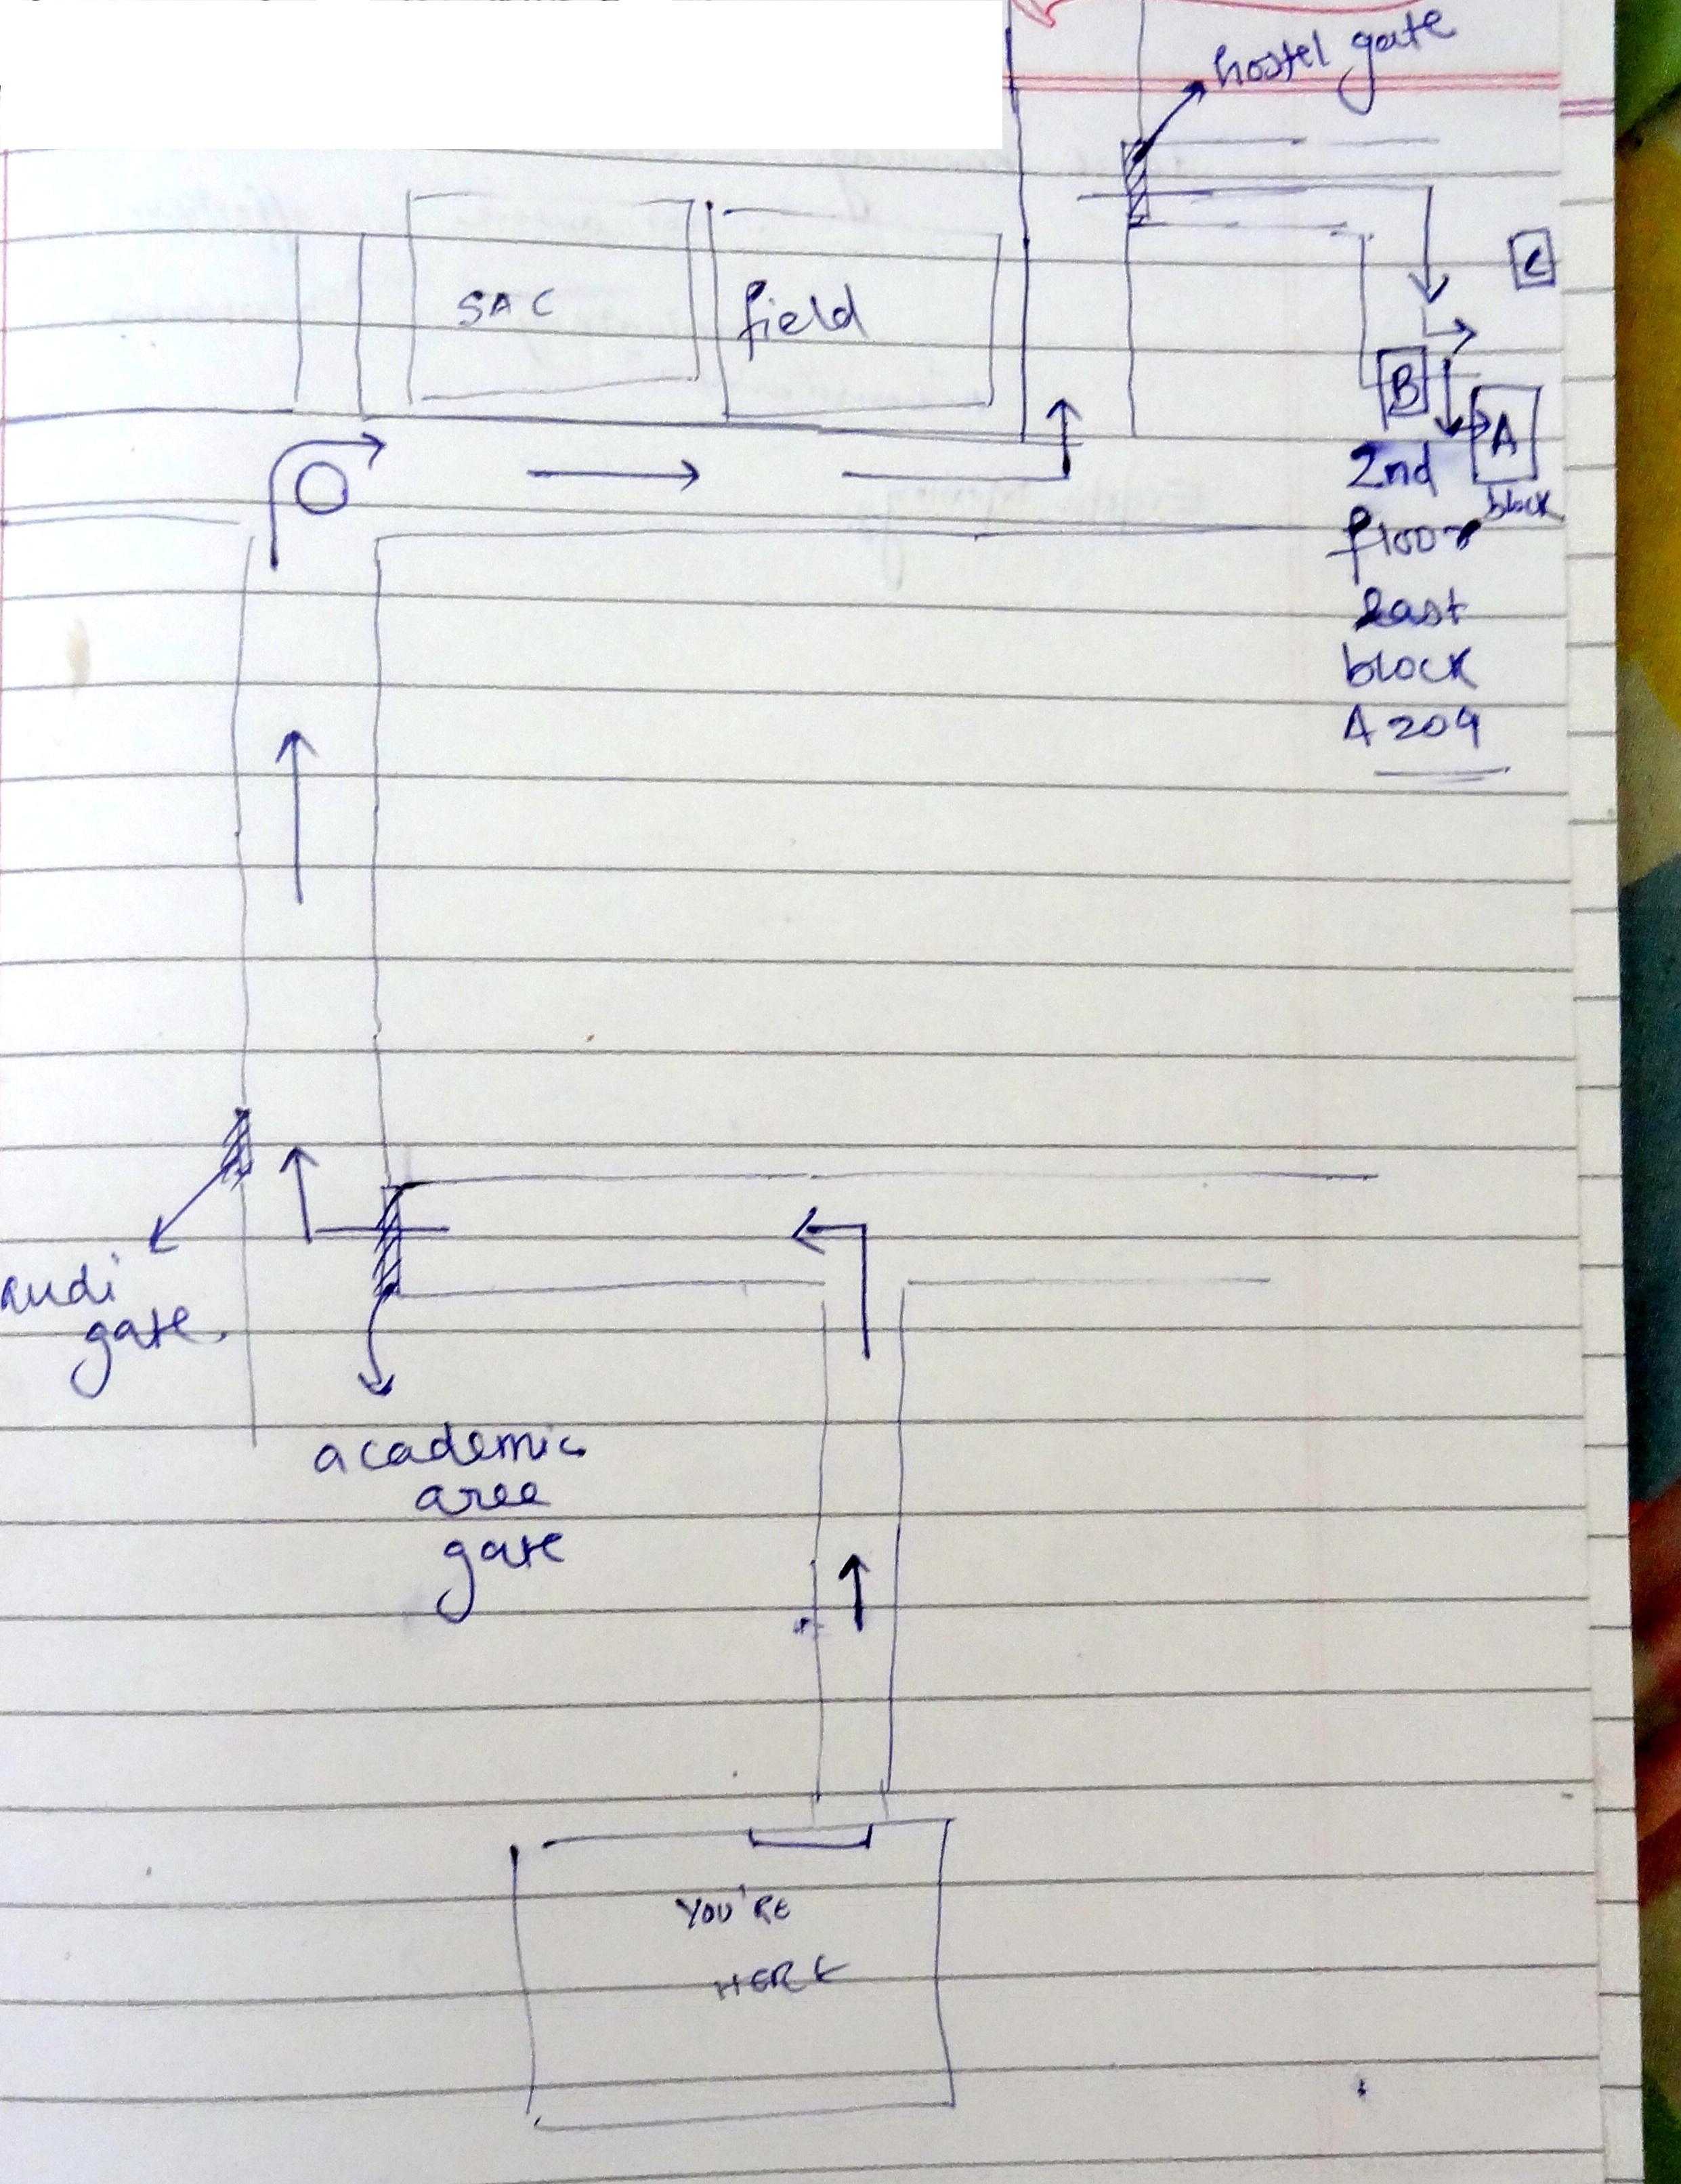 hostel gate
SAC
field
C
B
A
block
2nd
floor
east
block
A 209
audi
gate
academic
area
gate
YOU'RE
HERE